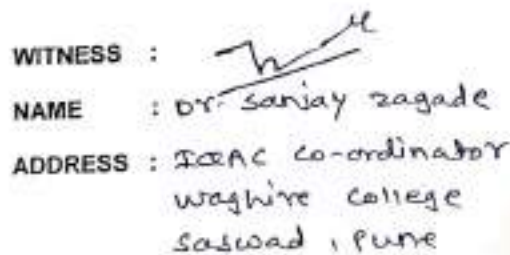 WITNESS :
NAME : Dr. Sanjay Zagade
ADDRESS : IQAC Co-ordinator
Waghire College
Saswad, Pune